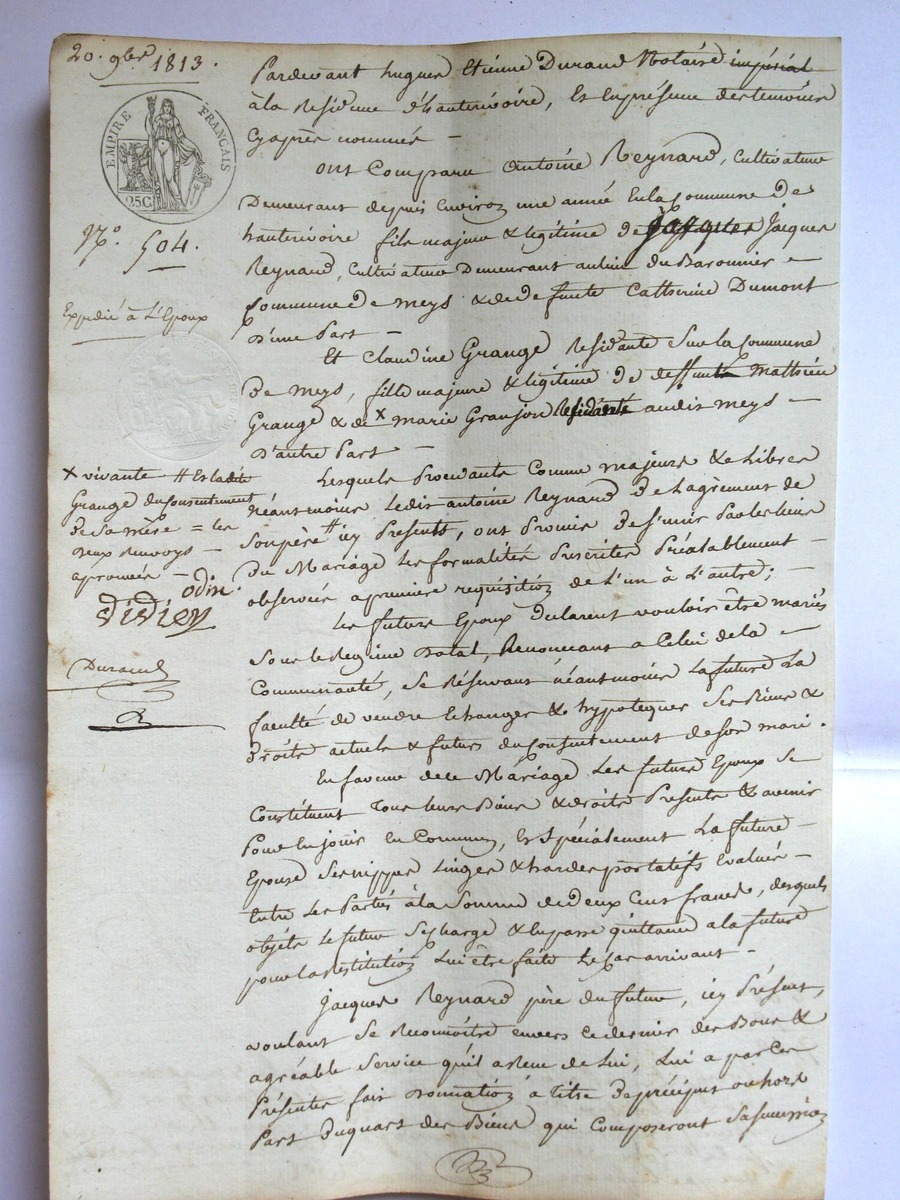 20. 9bre 1813.
EMPIRE FRANÇAIS
25C
N.o 504.
Expedié à L'Epoux
x vivante # Et ladite
Grange du Consentement
de Sa mère = les
deux renvoys —
aprouvés —
odin
Didier
Durand
Pardevant hugues Etienne Durand Notaire impérial
à la Residence d'hauterivoire, Et En présence des temoins
Cyaprès nommés —
ont Comparu Antoine Reynard, Cultivateur
Demeurant depuis Environ une année En la Commune de
hauterivoire fils majeur & légitime de Jacques Jacques
Reynard, Cultivateur Demeurant au lieu du Baronnier —
Commune de meys & de defunte Catherine Dumont
D'une Part —
Et Claudine Grange Residante Sur la Commune
De meys, fille majeure & légitime de deffunt Mathieu
Grange & de x marie Granjon Residante audit meys —
D'autre Part —
Lesquels Procedants Comme majeurs & Libres
Néantmoins Ledit antoine Reynard De L'agrément de
Son père # icy Présents, ont Promis de S'unir Par les liens
Du Mariage Les formalités Prescrites Préalablement —
observées a première requisition de L'un à L'autre; —
Les futurs Epoux Declarent vouloir être mariés
Sous le Regime Dotal, Renoncant a Celui de la —
Communauté, Se Réservant néantmoins La future La
faculté de vendre Echanger & hypotequer Ses Biens &
Droits actuels & futurs du Consentement de Son mari.
En faveur de ce Mariage Les futurs Epoux Se
Constituent Tous leurs Biens & droits Presents & avenir
Pour En jouir En Commun, Et Spécialement La future —
Epouse Ses nippes Linges & hardes portatifs Evalués —
Entre Les Parties à la Somme de deux Cent francs, desquels
objets Le futur Se charge & En passe quittance a la future
pour la restitution Lui être faite Le Cas arrivant —
Jacques Reynard père du futur, icy Présent,
voulant Se Reconnoitre envers ce dernier des Bons &
agréable Service qu'il a reçu de Lui, Lui a par Ces
Présentes fait Donnation à Titre De préciput ou hors
Part Du quart des Biens qui Composeront Sa Succession